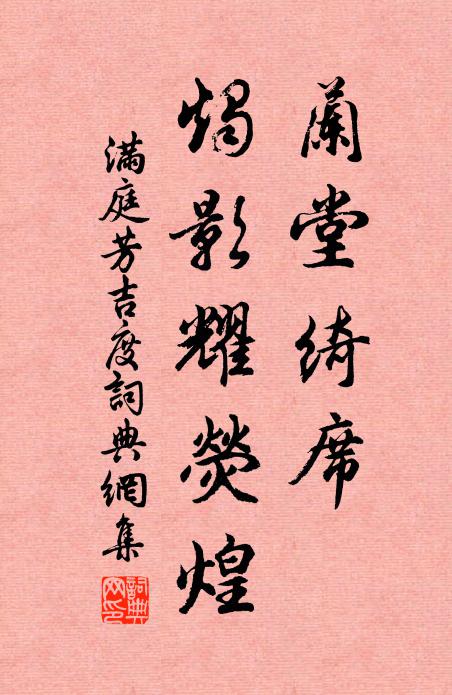 蘭堂綺席
燭影耀熒煌
滿庭芳吉度詞典網集
詞典
网印